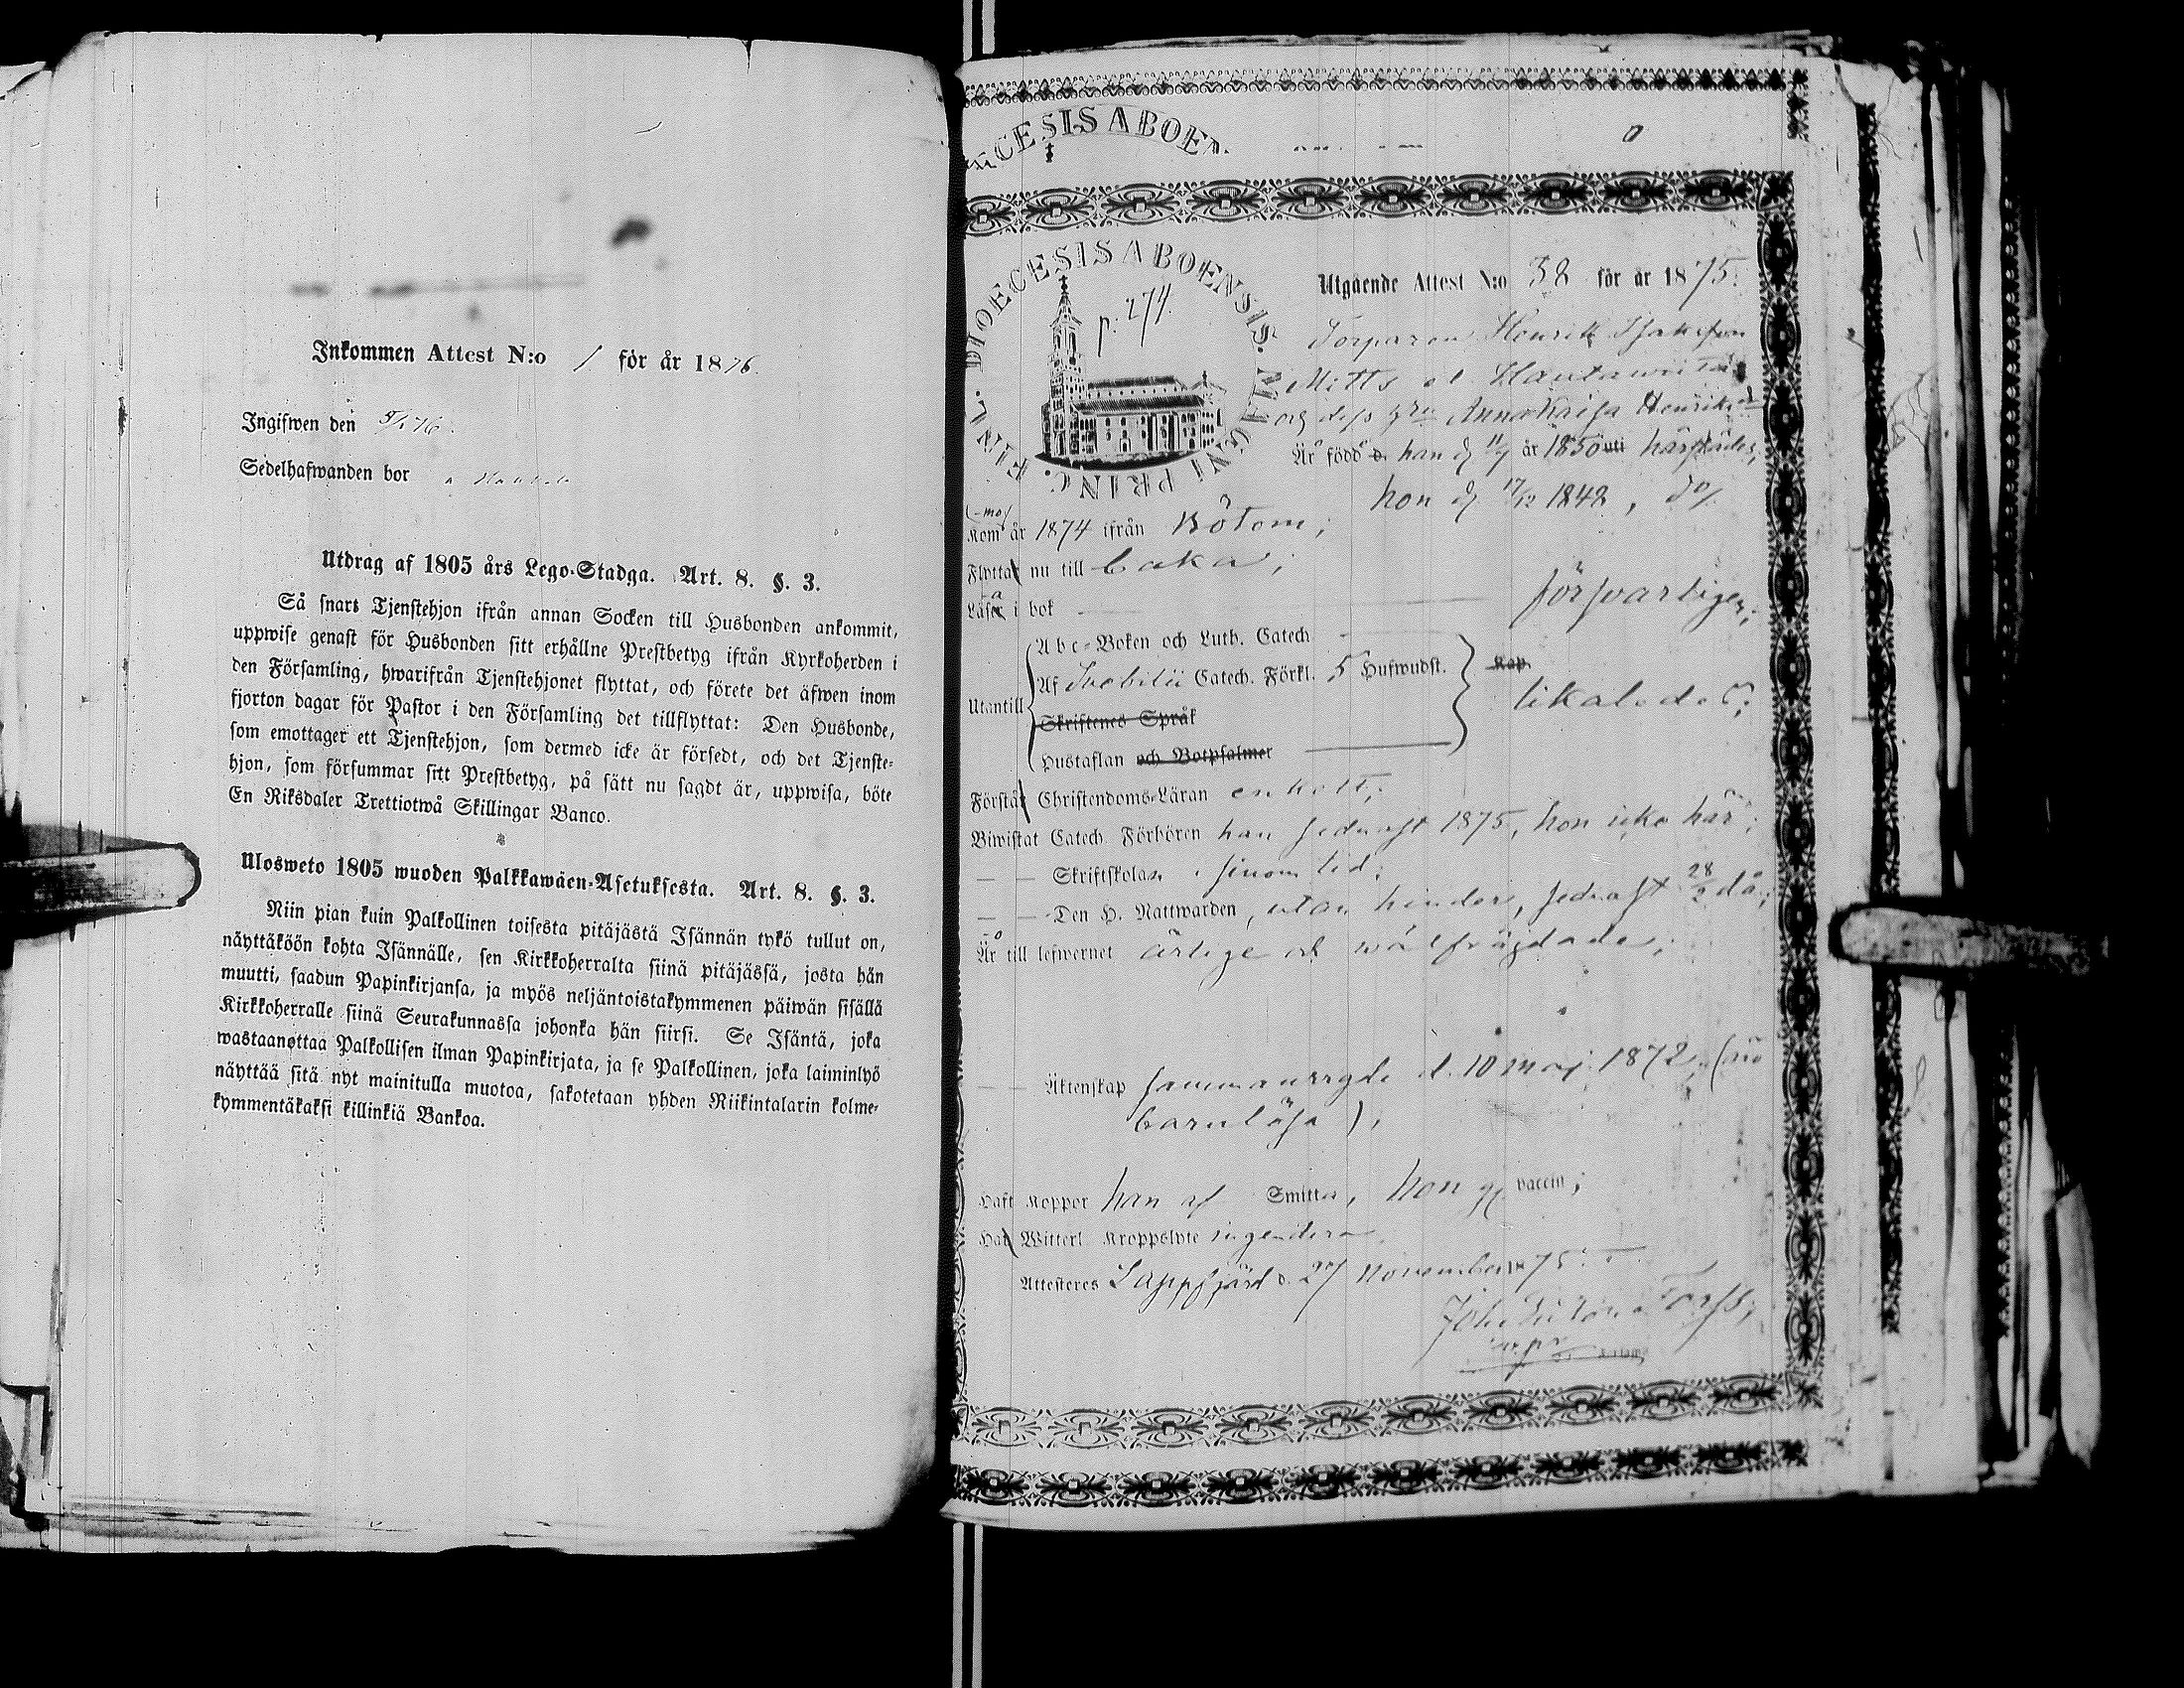 Inkommen Attest N:o 1 för år 1876.
Ingifwen den 5/1 76.
Sedelhafwanden bor
Utdrag af 1805 års Lego-Stadga. Art. 8. §. 3.
Så snart Tjenstehjon ifrån annan Socken till Husbonden ankommit,
uppwise genast för Husbonden sitt erhållne Prestbetyg ifrån Kyrkoherden i
den Församling, hwarifrån Tjenstehjonet flyttat, och förete det äfwen inom
fjorton dagar för Pastor i den Församling det tillflyttat: Den Husbonde,
som emottager ett Tjenstehjon, som dermed icke är försedt, och det Tjenste-
hjon, som försummar sitt Prestbetyg, på sätt nu sagdt är, uppwisa, böte
En Riksdaler Trettiotwå Skillingar Banco.
Ulosweto 1805 wuoden Palkkawäen-Asetuksesta. Art. 8. §. 3.
Niin pian kuin Palkollinen toisesta pitäjästä Isännän tykö tullut on,
näyttäköön kohta Isännälle, sen Kirkkoherralta siinä pitäjässä, josta hän
muutti, saadun Papinkirjansa, ja myös neljäntoistakymmenen päiwän sisällä
Kirkkoherralle siinä Seurakunnassa johonka hän siirsi. Se Isäntä, joka
wastaanottaa Palkollisen ilman Papinkirjata, ja se Palkollinen, joka laiminlyö
näyttää sitä nyt mainitulla muotoa, sakotetaan yhden Riikintalarin kolme-
kymmentäkaksi killinkiä Bankoa.
ŒCESIS ABOEN
DIOECESIS ABOENSIS. MAGNI PRINC. FINL.
p. 274.
Utgående Attest N:o 38 för år 1875.
Torparen Henrik Isaksson
Mitts el. Hautawiita
och dess h:u Anna Kaisa Henriksd:r
Är född d. han d. 11/7 år 1850 uti härstädes,
hon d. 17/12 1848, d:o/
Kommo år 1874 ifrån Bötom;
Flytta nu till baka;
Läsa i bok försvarligen;
Abc-Boken och Luth. Catech.
Utantill Af Svebilii Catech. Förkl. 5 Hufwudst. Kap.
Skriftenes Språk likaledes;
Hustaflan och Botpsalmer
Förstå Christendoms-Läran enkelt;
Biwistat Catech. Förhören han sednast 1875, hon icke här;
— — Skriftskolan i sinom tid;
— — Den H. Nattwarden, utan hinder, sednast 28/2 då;
Äro till lefwernet ärlige o wälfrägdade;
— — Äktenskap sammanvigde d. 10 maj 1872, (äro
barnlösa);
Haft Koppor han af Smitta, hon gf vaccin;
Ha Witterl. Kroppslyte ingendera
Attesteres Lappfjärd d. 27 November 1875.
Forss,